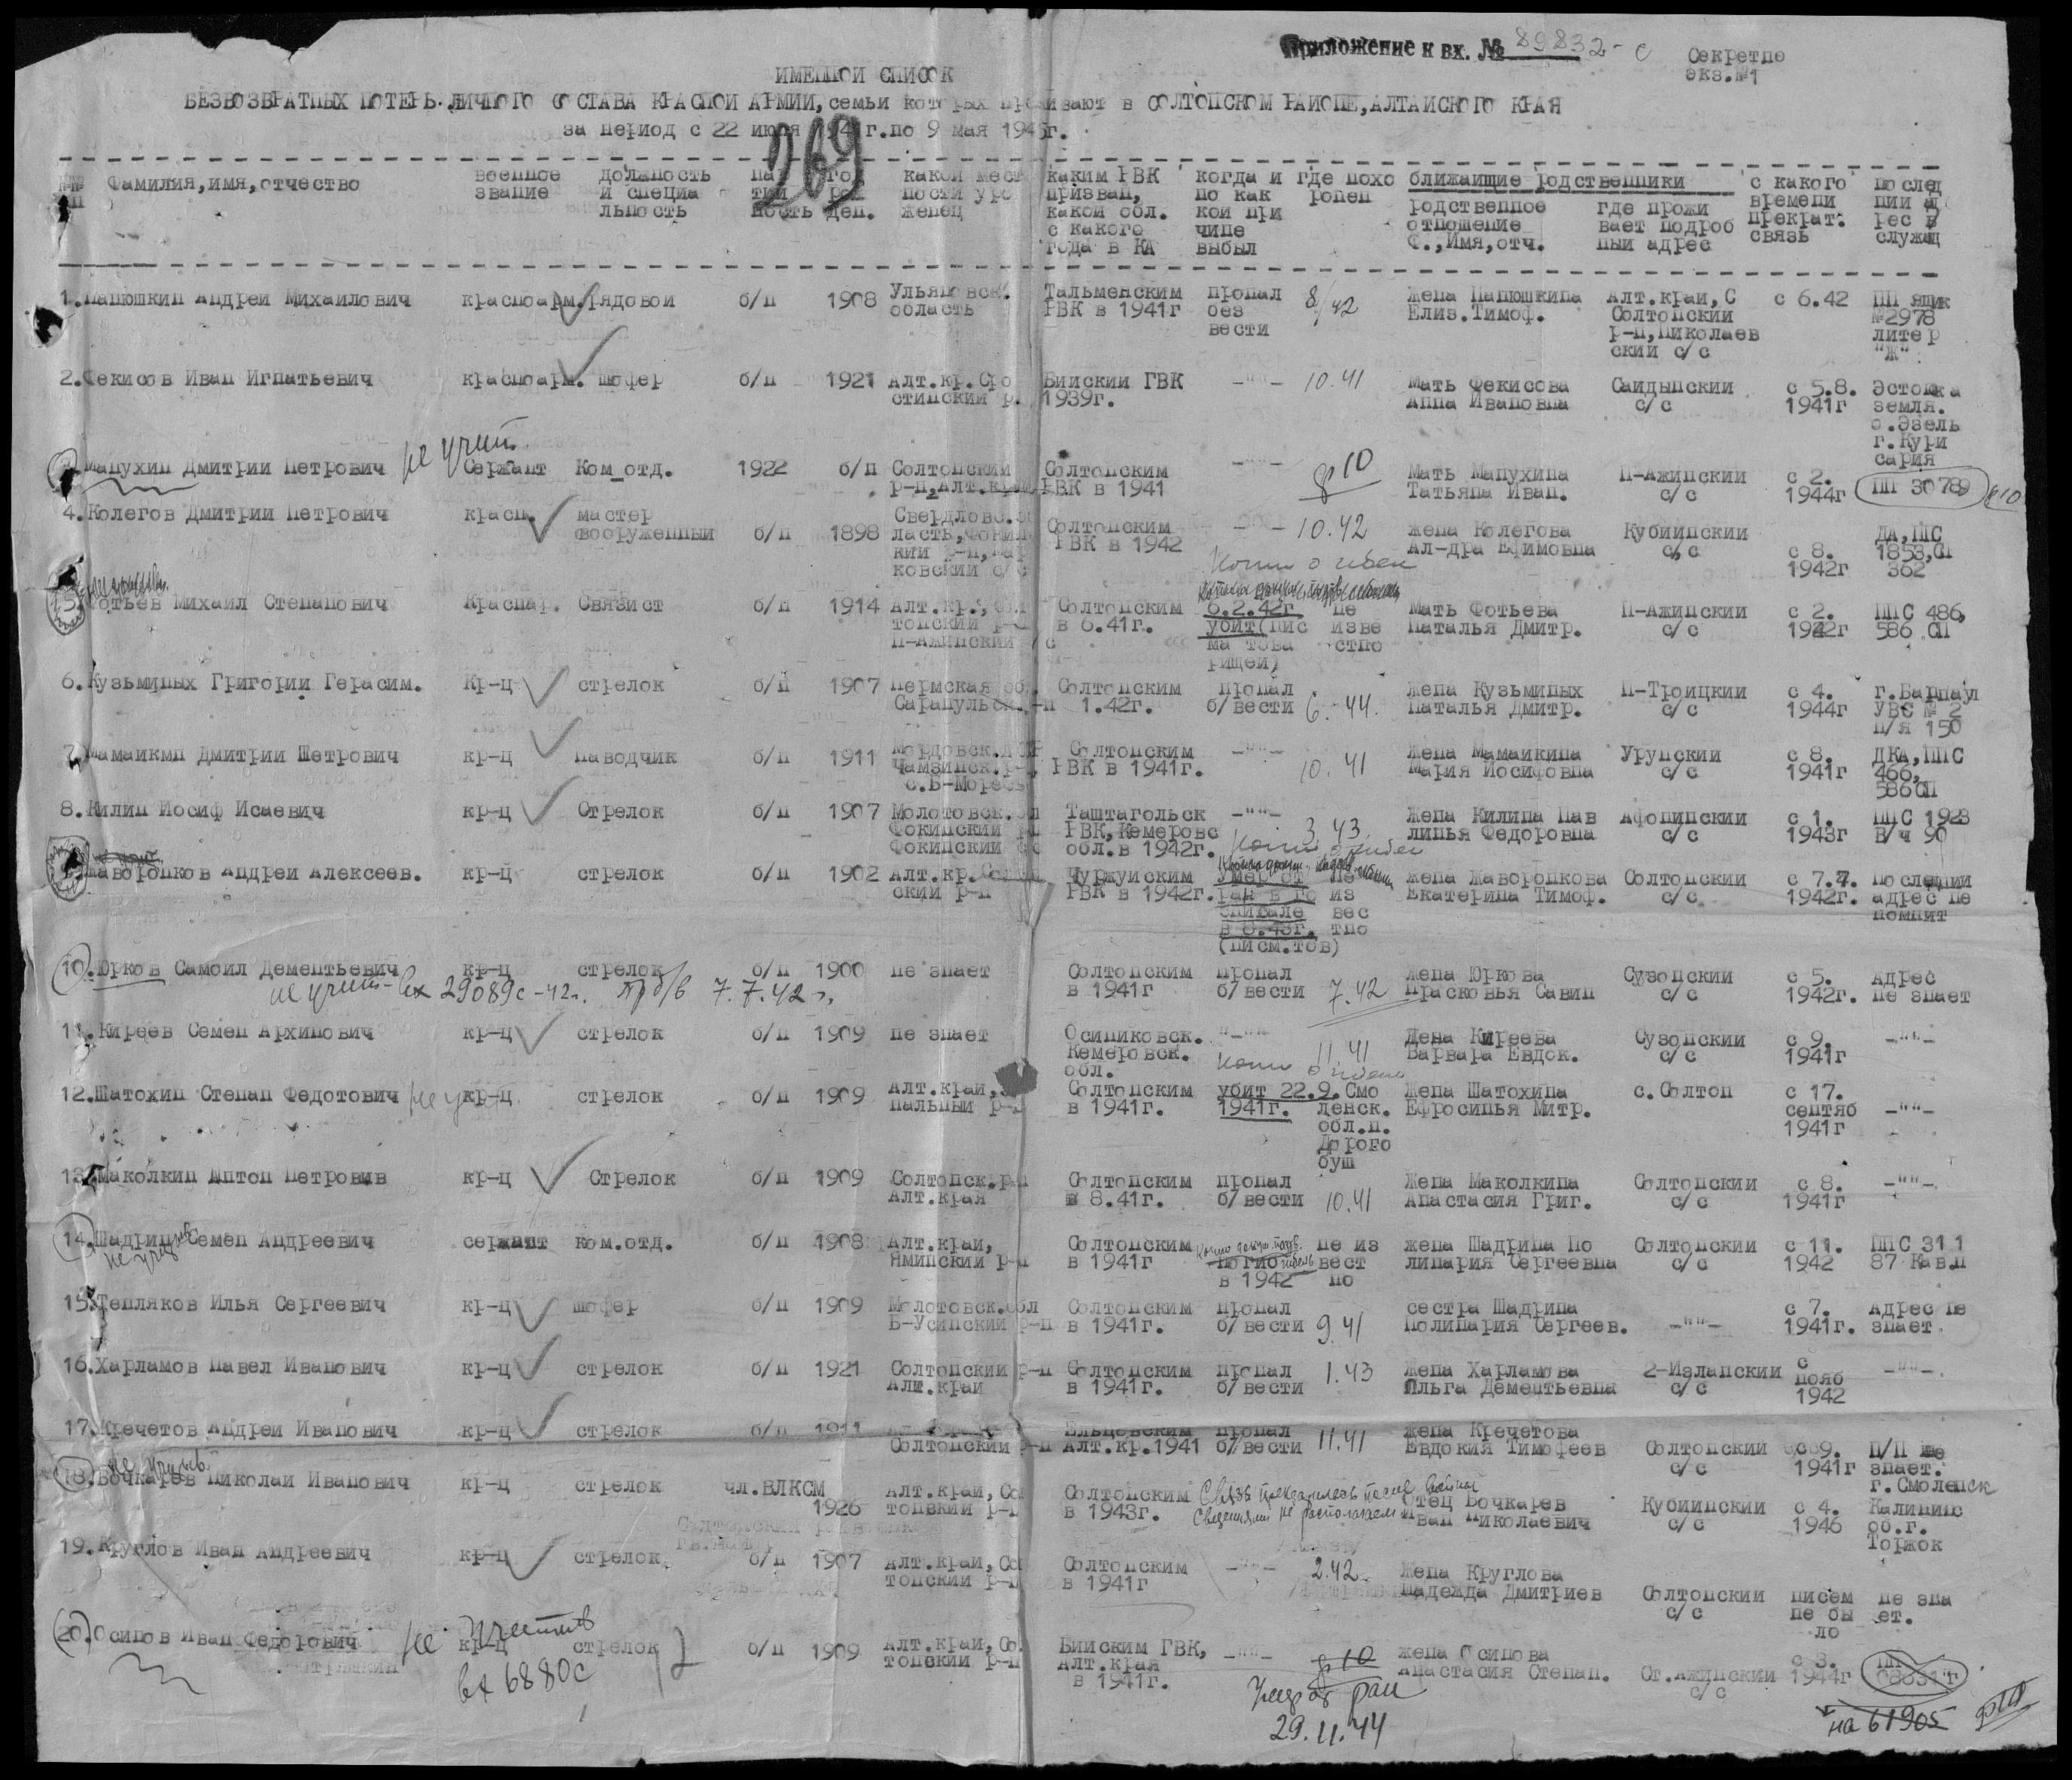 Приложение к вх. № 89832-с
Секретно
экз.№1
ИМЕННОЙ СПИСОК
БЕЗВОЗВРАТНЫХ ПОТЕРЬ ЛИЧНОГО СОСТАВА КРАСНОЙ АРМИИ, семьи которых проживают в СОЛТОНСКОМ РАЙОНЕ, АЛТАЙСКОГО КРАЯ
за период с 22 июня 1941г. по 9 мая 1945г.
269
Фамилия, имя, отчество военное должность пар го какой мест каким РВК когда и где похо ближайшие родственники с какого послед
звание и специа тий рож ности уро призван, по как ронен родственное где прожи времени ний ад
льность ность ден. женец какой обл. кой при отношение вает подроб прекрат. рес в
с какого чине Ф.,Имя,отч. ный адрес связь служащ
года в КА выбыл
1. Папюшкин Андрей Михайлович красноарм. рядовой б/п 1908 Ульяновск. Тальменским пропал 8/42 Жена Папюшкина Алт.край,С с 6.42 ПП ящик
область РВК в 1941г без Елиз.Тимоф. Солтонский №2978
вести р-н,Николаев литер
ский с/с "Ж"
2. Фекисов Иван Игнатьевич красноарм. шофер б/п 1921 Алт.кр.Сро Бийский ГВК -""- 10.41 Мать Фекисова Сайдынский с 5.8. Эстонка
стинский р. 1939г. Анна Ивановна с/с 1941г земля.
о.Эзель
г.Кури
сария
не учит.
3. Мапухин Дмитрий Петрович Сержант Ком_отд. 1922 б/п Солтонский Солтонским -""- ф10 Мать Мапухина Н-Ажинский с 2. ПП 30789 ф10
р-н,Алт.край РВК в 1941 Татьяна Иван. с/с 1944г
4. Колегов Дмитрий Петрович красн. мастер б/п 1898 Свердловс.об Солтонским -""- 10.42 жена Колегова Кубийнский с 8. ДА,ППС
вооруженный ласть,Фокин РВК в 1942 Ал-дра Ефимовна с/с 1942г 1858,СП
кий р-н, 362
ковский с/с
5. Фотьев Михаил Степанович Краснар. Связист б/п 1914 Алт.кр.,Сол Солтонским 6.2.42г. не Мать Фотьева Н-Ажинский с 2. ППС 486,
тонский р-н в 6.41г. убит(пис изве Наталья Дмитр. с/с 1942г 586 СП
Н-Ажинский с/с ма това стно
рищей)
6. Кузьминых Григорий Герасим. Кр-ц стрелок б/п 1907 Пермская обл. Солтонским пропал Жена Кузьминых Н-Троицкий с 4. г.Барнаул
Сарапульск.р-н 1.42г. б/вести 6.44. Наталья Дмитр. с/с 1944г УВС № 2
п/я 150
7. Мамайкмн Дмитрий Шетрович кр-ц наводчик б/п 1911 Мордовск.АССР Солтонским -""- Жена Мамайкина Урунский с 8. ДКА,ППС
Чамзинск.р-н РВК в 1941г. 10.41 Мария Иосифовна с/с 1941г 466,
с.Б-Моресь 586СП
8. Килин Иосиф Исаевич кр-ц Стрелок б/п 1907 Молотовск.обл Таштагольск -""- Жена Килина Пав Афонинский с 1. ППС 1923
Фокинский рн РВК,Кемеровс 3.43 линья Федоровна с/с 1943г В/ч 90
Фокинский сс обл.в 1942г.
9. Жаворонков Андрей Алексеев. кр-ц стрелок б/п 1902 Алт.кр.Солтон Чуржуйским Умер от не жена Жаворонкова Солтонский с 7.7. последний
ский р-н РВК в 1942г. ран в го из Екатерина Тимоф. с/с 1942г. адрес не
спитале вес помнит
в 8.43г. тно
(писм.тов)
10. Юрков Самоил Дементьевич кр-ц стрелок б/п 1900 не знает Солтонским пропал Жена Юркова Сузопский с 5. Адрес
не учит- вх 29089с-42г. пр б/в 7.7.42г. в 1941г б/вести 7.42 Прасковья Савин с/с 1942г. не знает
11. Киреев Семен Архипович кр-ц стрелок б/п 1909 не знает Осиниковск. "-"" Жена Киреева Сузопский с 9. -""-
Кемеровск. 11.41 Варвара Евдок. с/с 1941г
обл.
12. Шатохин Степан Федотович кр-ц стрелок б/п 1909 Алт.край, Солтонским убит 22.9. Смо Жена Шатохина с.Солтон с 17.
нальный р-н в 1941г. 1941г. ленск. Ефросинья Митр. сентяб -""-
обл.п. 1941г
Дорого
буш
13. Маколкин Антон Петровив кр-ц Стрелок б/п 1909 Солтонск.р-н Солтонским пропал Жена Маколкина Солтонский с 8. -""-
Алт.края в 8.41г. б/вести 10.41 Анастасия Григ. с/с 1941г
14. Шадрин Семен Андреевич сержант ком.отд. б/п 1908 Алт.край, Солтонским погиб не из жена Шадрина По Солтонский с 11. ППС 311
Яминский р-н в 1941г в 1942 вест линария Сергеевна с/с 1942 87 Кав.п
но
15. Тепляков Илья Сергеевич кр-ц шофер б/п 1909 Молотовск.обл Солтонским пропал сестра Шадрина с 7. Адрес не
Б-Усинский р-н в 1941г. б/вести 9.41 Полинария Сергеев. -""- 1941г. знает.
16. Харламов Павел Иванович кр-ц стрелок б/п 1921 Солтонский р-н Солтонским пропал 1.43 жена Харламова 2-Изланский с -""-
Алт.край в 1941г. б/вести Ольга Дементьевна с/с нояб
1942
17. Кречетов Андрей Иванович кр-ц стрелок б/п 1911 Ельцовским пропал жена Кречетова
Солтонский р-н Алт.кр.1941 б/вести 11.41 Евдокия Тимофеев Солтонский с 9. П/П не
с/с 1941г знает.
г.Смоленск
18. Бочкарев Николай Иванович кр-ц стрелок чл.ВЛКСМ Алт.край,Сол Солтонским Связь прекратилась после войны Отец Бочкарев Кубийнский с 4. Калининс
1926 тонский р-н в 1943г. Сведениями не располагаем Иван Николаевич с/с 1946 об.г.
Торжок
19. Круглов Иван Андреевич кр-ц стрелок б/п 1907 Алт.край,Сол Солтонским -""- 2.42 Жена Круглова
тонский р-н в 1941г Надежда Дмитриев Солтонский писем не зна
с/с не бы ет.
ло
20. Осипов Иван Федорович кр-ц стрелок б/п 1909 Алт.край,Сол Бийским ГВК, -""- ф10 жена Осипова с 3. ПП
вх 6880с тонский р-н Алт.края Анастасия Степан. Ст.Ажинский 1944г
в 1941г. с/с
Умер от ран
29.11.44
на 61905